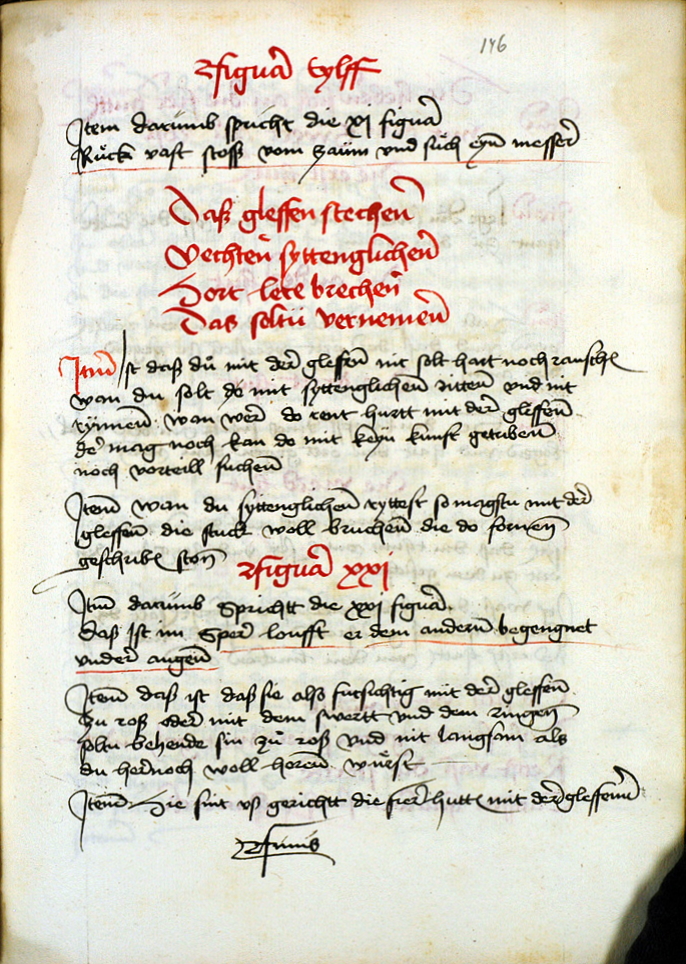 146
Figura xlff
Item darumb spricht die xj figura
Ruck vast stoss vom zaum und such eyn messer
Daß gleffen stechen
Vechten syttenglichen
Hort lete brechen
Das soltu vernemen
Item ist daß du mit der gleffen nit solt hart noch rausche
wan du solt do mit syttenglichen ritten vnd nit
rynnen wan wer do rent hurtt mit der gleffen
der mag noch kan do mit keyn kunst getriben
noch vorteill suchen
Item wan du syttenglichen ryttest so magstu mit der
gleffen die stuck woll bruchen die do fornen
geschriben ston
Figura xxj
Item darumb Sprichtt die xxj figura
Daß Ist im Sper loufft er dem andern begengnet
vnder augen
Item daß ist daß sie alß fursichtig mit der gleffen
zu roß oder mit dem swertt vnd dem ringen
soltu behende sin zu roß vnd nit langsam als
du hernoch woll horen wurst
Item Hie sint vß gerichtt die fier hutten mit der gleffenn
Finis